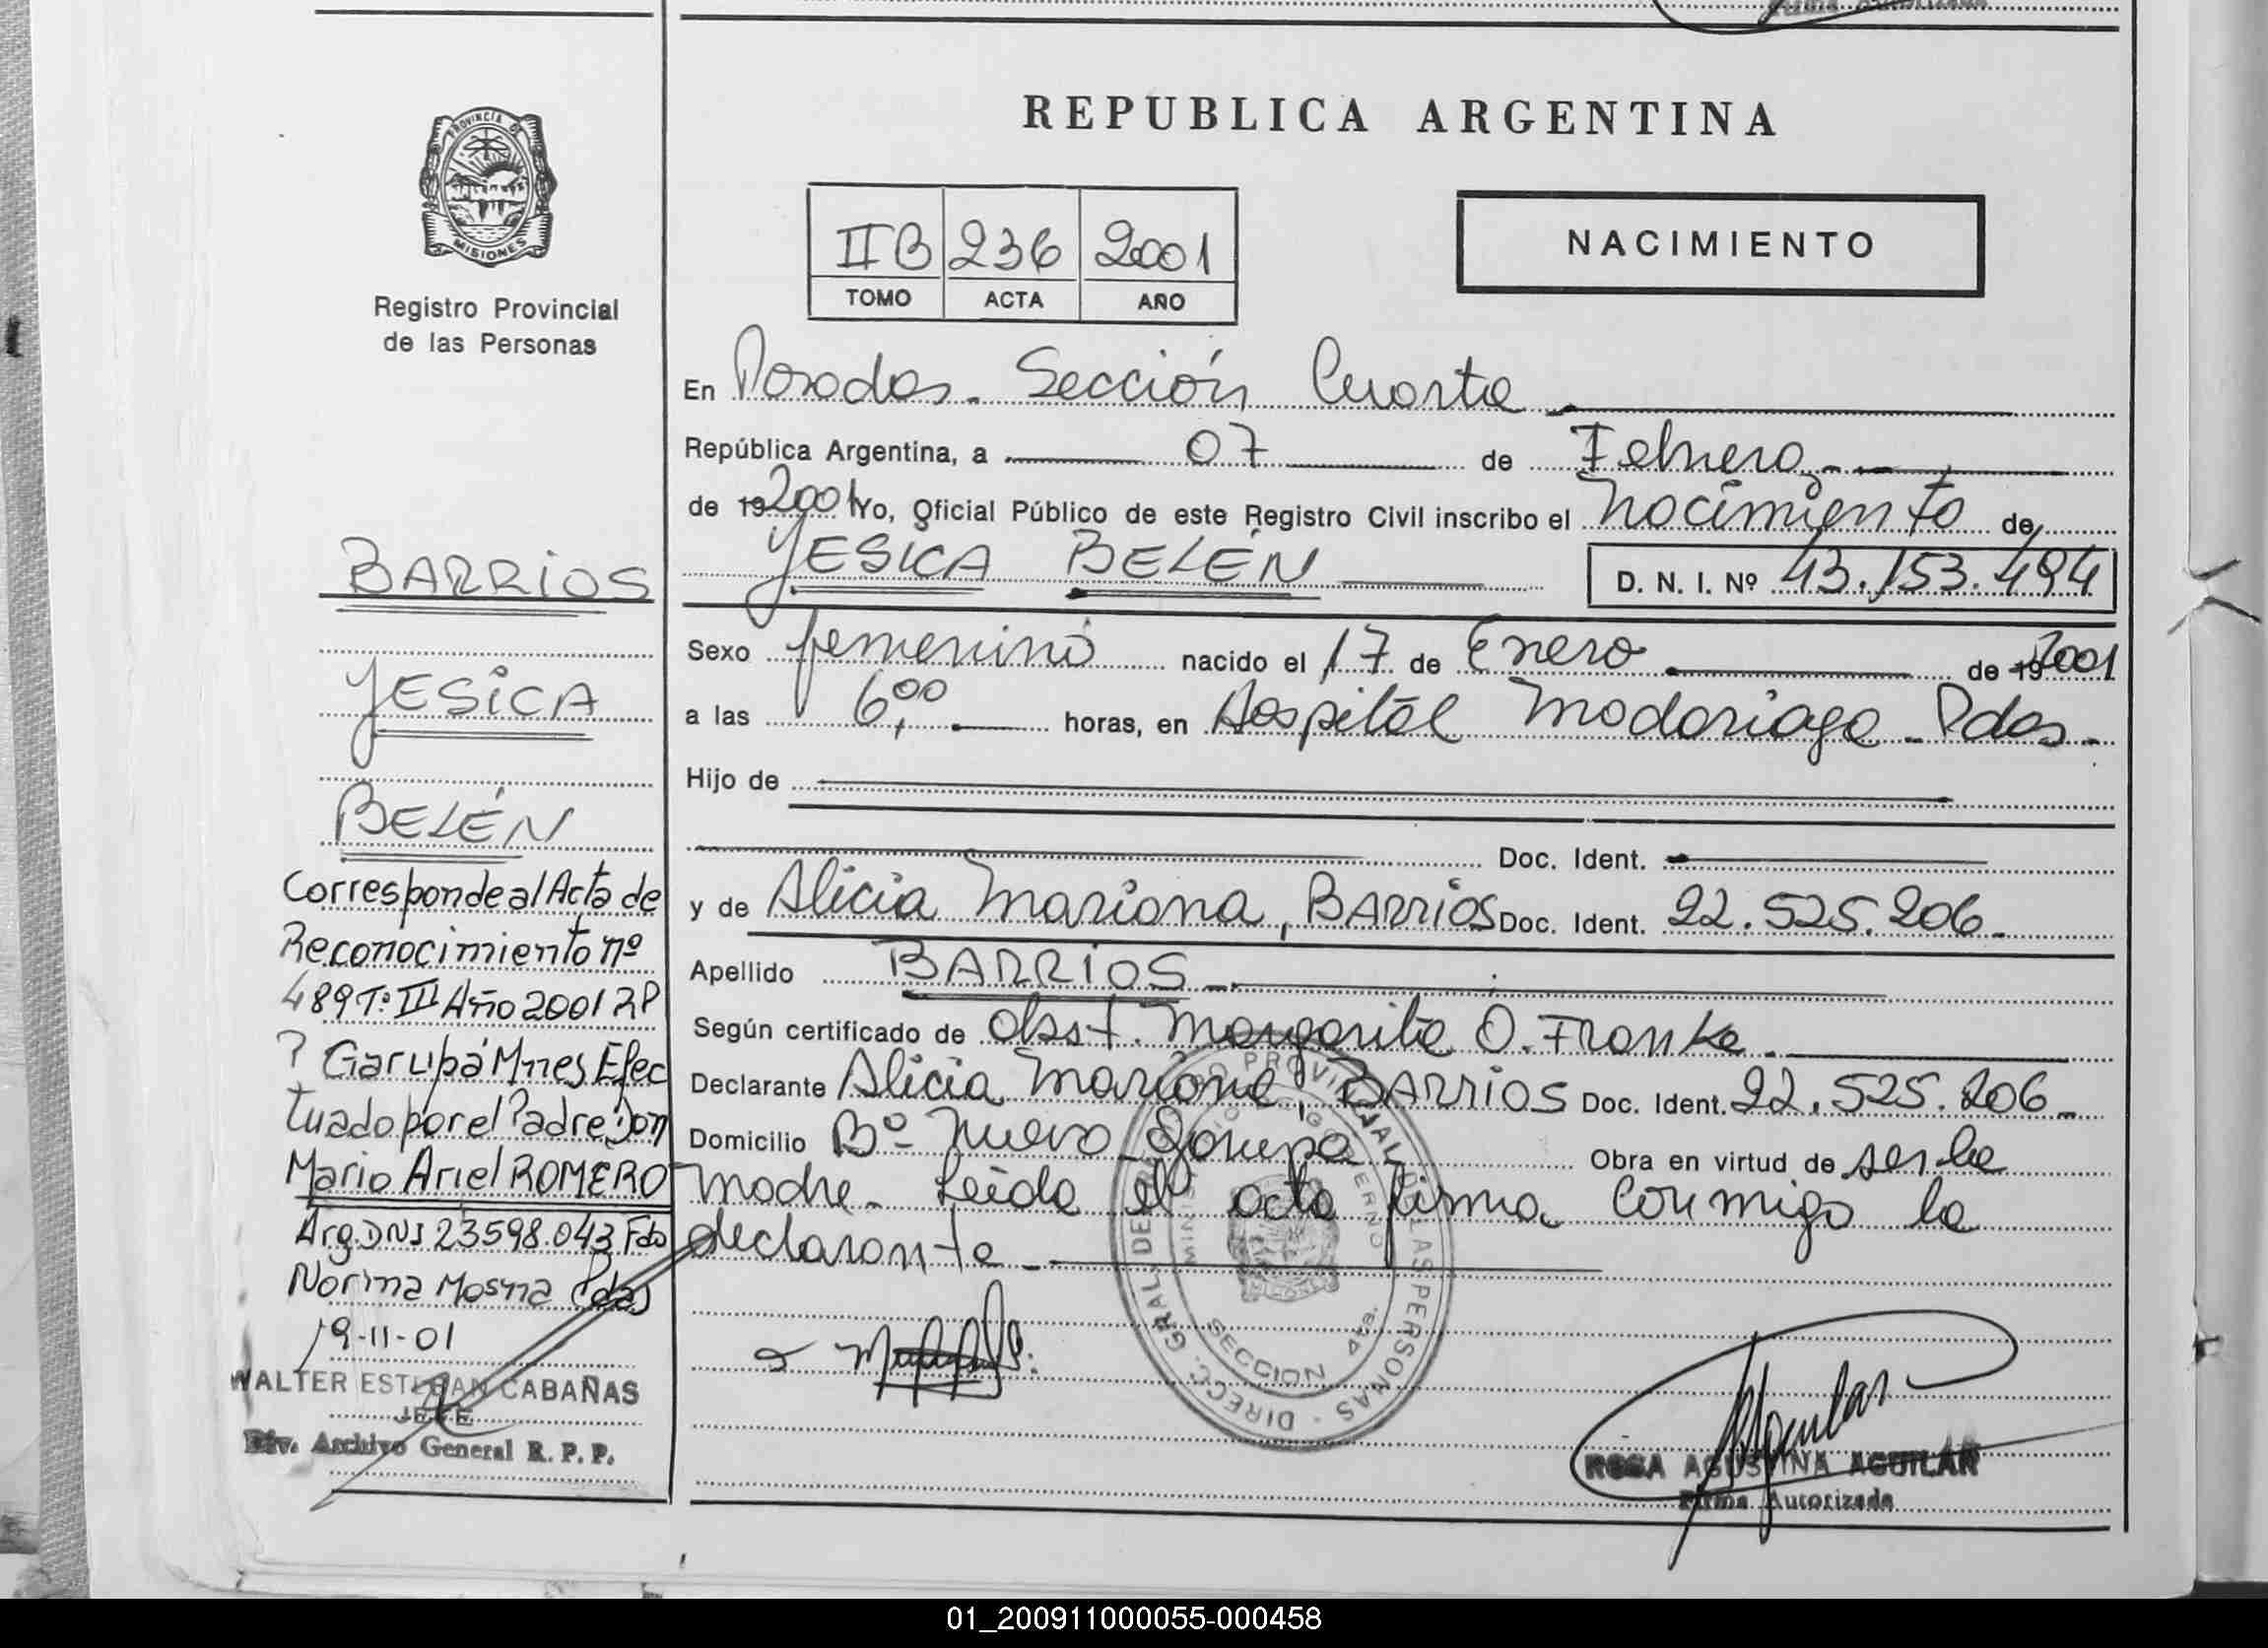 REPUBLICA ARGENTINA
PROVINCIA DE
MISIONES
Registro Provincial
de las Personas
IIB 236 2001
TOMO ACTA AÑO
NACIMIENTO
En Posadas. Sección Cuarta
República Argentina, a 07 de Febrero
de 19 2001 Yo, Oficial Público de este Registro Civil inscribo el Nacimiento de
YESICA BELÉN D. N. I. Nº 43.153.494
Sexo femenino nacido el 17 de Enero de 19 2001
a las 6,00 horas, en Hospital Madariaga - Pdas.
Hijo de
Doc. Ident.
y de Alicia Mariana, BARRIOS Doc. Ident. 22.525.206.
Apellido BARRIOS
Según certificado de obst. Margarita O. Franke.
Declarante Alicia Mariana, BARRIOS Doc. Ident. 22.525.206
Domicilio Bº Nuevo Garupa Obra en virtud de ser la
madre. Leída el acta firma conmigo la
declarante
BARRIOS
YESICA
BELÉN
Corresponde al Acta de
Reconocimiento nº
489 Tº III Año 2001 RP
P Garupá Mnes Efec
tuado por el Padre: Don
Mario Ariel ROMERO
Arg. DNI 23598.043 Fdo
Norma Mosna Pdas
19-11-01
WALTER ESTEBAN CABAÑAS
JEFE
Div. Archivo General R. P. P.
DIRECC. GRAL. DEL REGISTRO PROVINCIAL DE LAS PERSONAS
MINISTERIO DE GOBIERNO
SECCION 4ta.
ROSA AGUSTINA AGUILAR
Firma Autorizada
01_200911000055-000458